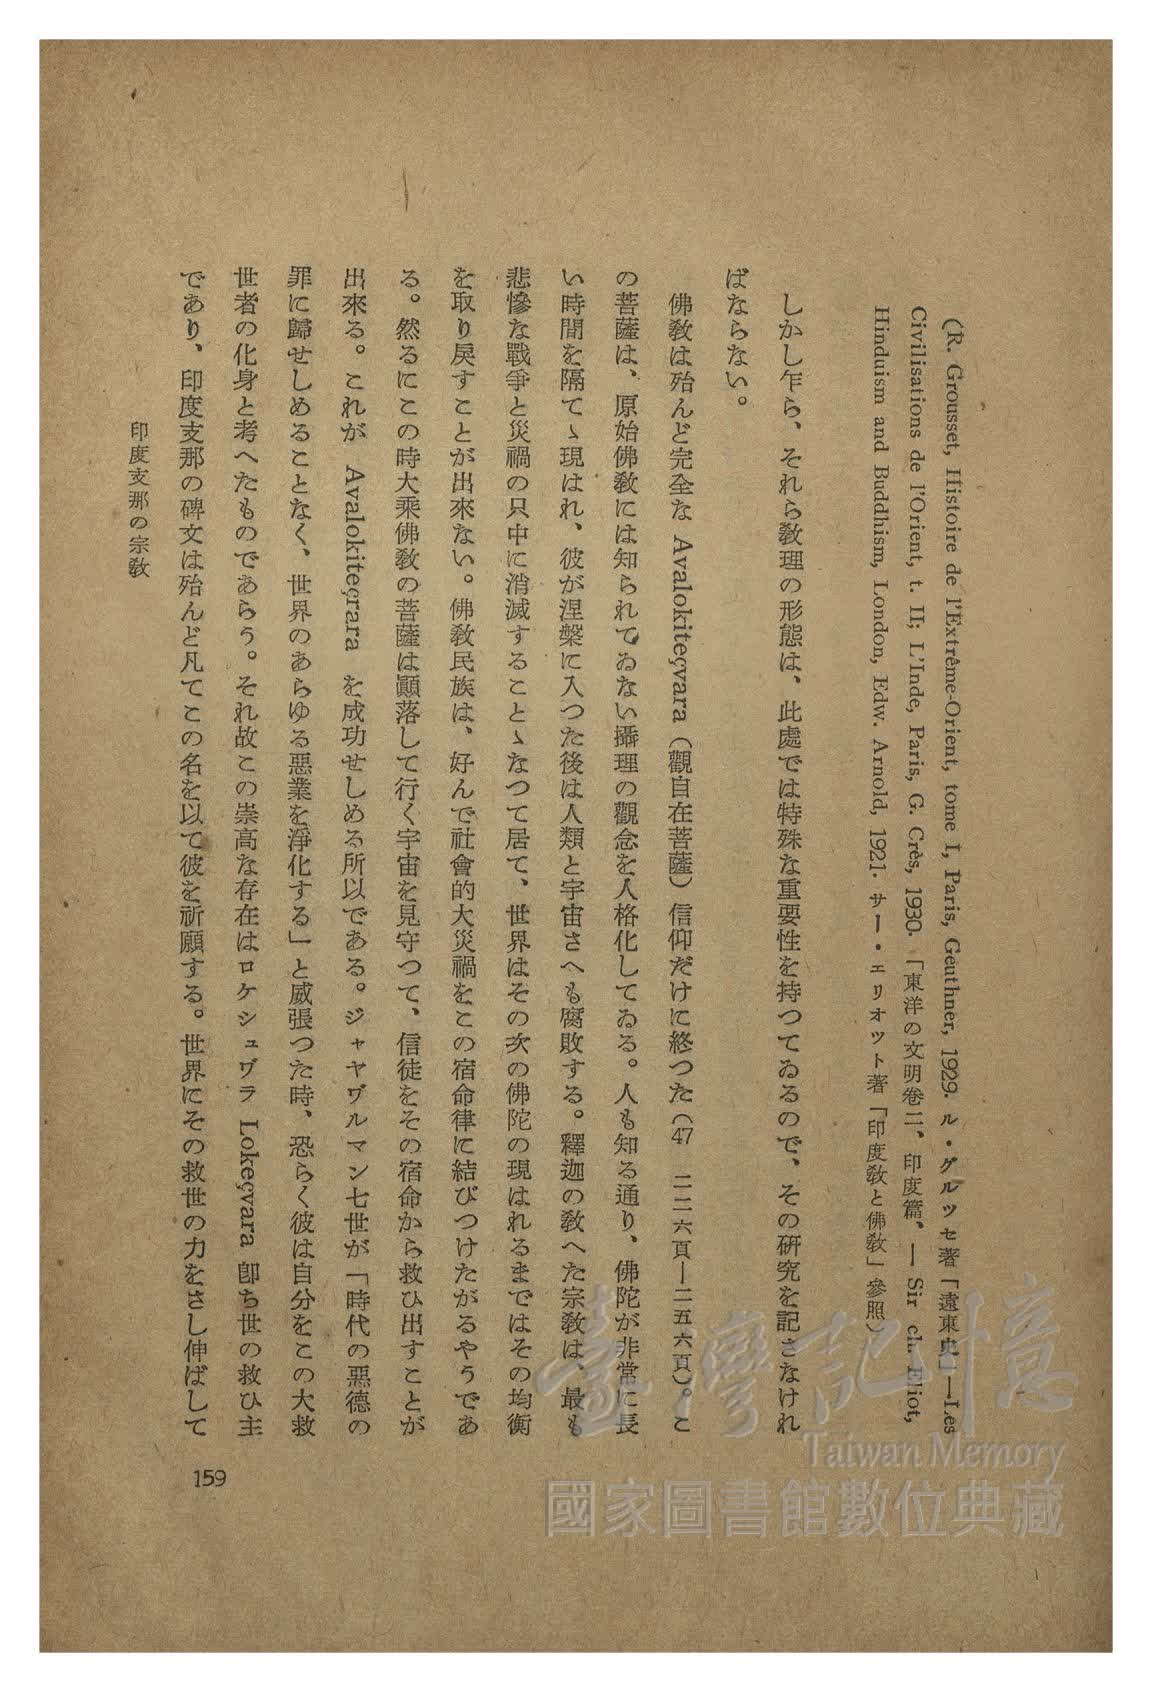 (R. Grousset, Histoire de l'Extrême-Orient, tome I, Paris, Geuthner, 1929. ル・グルッセ著「遠東史」—Les
Civilisations de l'Orient, t. II; L'Inde, Paris, G. Crès, 1930. 「東洋の文明卷二、印度篇、— Sir ch. Eliot,
Hinduism and Buddhism, London, Edw. Arnold, 1921. サー・エリオット著「印度敎と佛敎」參照)
しかし乍ら、それら敎理の形態は、此處では特殊な重要性を持つてゐるので、その研究を記さなけれ
ばならない。
佛敎は殆んど完全な Avalokiteçvara (觀自在菩薩) 信仰だけに終つた (47 二二六頁—二五六頁)。こ
の菩薩は、原始佛敎には知られてゐない攝理の觀念を人格化してゐる。人も知る通り、佛陀が非常に長
い時間を隔てゝ現はれ、彼が涅槃に入つた後は人類と宇宙さへも腐敗する。釋迦の敎へた宗敎は、最も
悲慘な戰爭と災禍の只中に消滅することゝなつて居て、世界はその次の佛陀の現はれるまではその均衡
を取り戾すことが出來ない。佛敎民族は、好んで社會的大災禍をこの宿命律に結びつけたがるやうであ
る。然るにこの時大乘佛敎の菩薩は顚落して行く宇宙を見守つて、信徒をその宿命から救ひ出すことが
出來る。これが Avalokiteçrara を成功せしめる所以である。ジャヤヴルマン七世が「時代の惡德の
罪に歸せしめることなく、世界のあらゆる惡業を淨化する」と威張つた時、恐らく彼は自分をこの大救
世者の化身と考へたものであらう。それ故この崇高な存在はロケシュヴラ Lokeçvara 卽ち世の救ひ主
であり、印度支那の碑文は殆んど凡てこの名を以て彼を祈願する。世界にその救世の力をさし伸ばして
印度支那の宗敎
159
臺灣記憶
Taiwan Memory
國家圖書館數位典藏